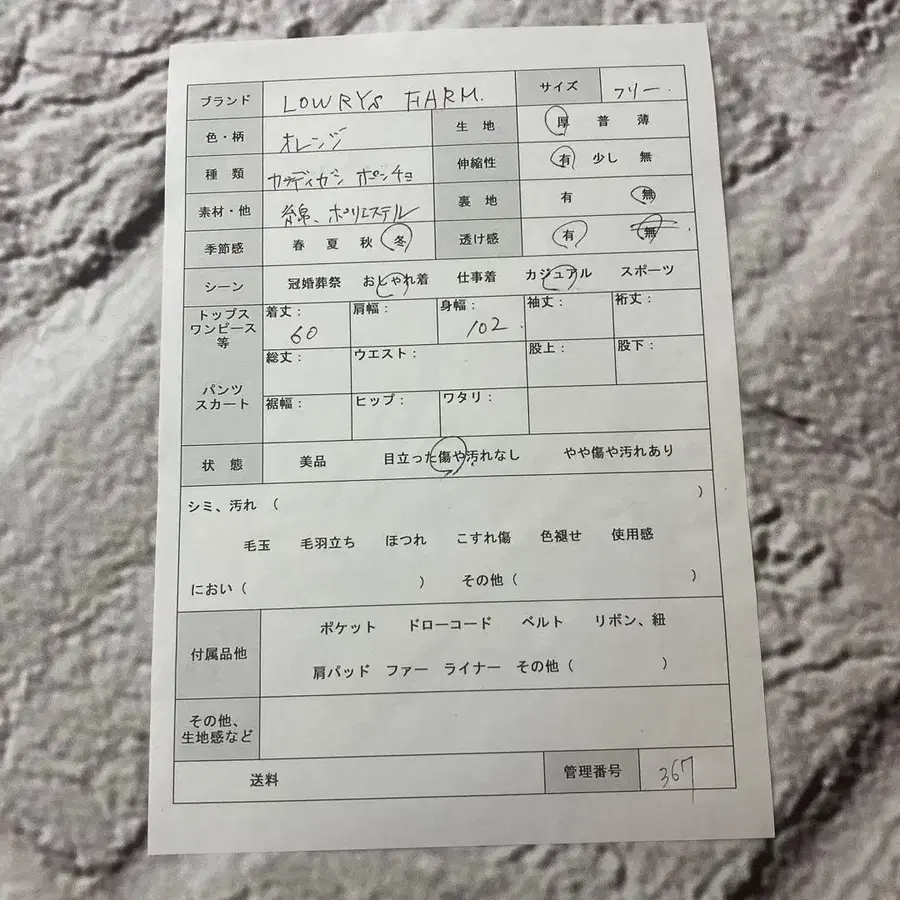 ブランド LOWRYS FARM. サイズ フリー.
色・柄 オレンジ 生地 厚 普 薄
種類 カーディガン ポンチョ 伸縮性 有 少し 無
素材・他 綿、ポリエステル 裏地 有 無
季節感 春 夏 秋 冬 透け感 有 無
シーン 冠婚葬祭 おしゃれ着 仕事着 カジュアル スポーツ
トップス
ワンピース
等
着丈： 肩幅： 身幅： 袖丈： 裄丈：
60 102
パンツ
スカート
総丈： ウエスト： 股上： 股下：
裾幅： ヒップ： ワタリ：
状態 美品 目立った傷や汚れなし やや傷や汚れあり
シミ、汚れ（ ）
毛玉 毛羽立ち ほつれ こすれ傷 色褪せ 使用感
におい（ ） その他（ ）
付属品他 ポケット ドローコード ベルト リボン、紐
肩パッド ファー ライナー その他（ ）
その他、
生地感など
送料 管理番号 367